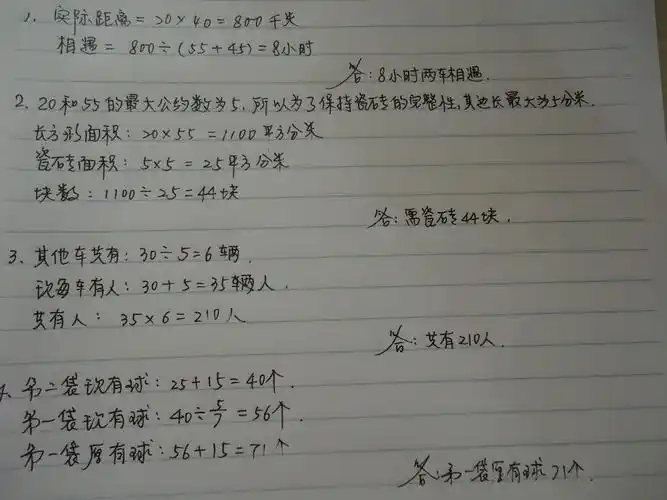 1. 实际距离=20×40=800千米
相遇= 800÷(55+45)=8小时
答:8小时两车相遇.
2. 20和55的最大公约数为5,所以为了保持瓷砖的完整性,其边长最大为5分米.
长方形面积:20×55=1100平方分米
瓷砖面积:5×5=25平方分米
块数:1100÷25=44块
答:需瓷砖44块.
3、其他车共有:30÷5=6辆.
现每车有人:30+5=35辆人.
共有人: 35×6=210人
答:共有210人.
4. 第二袋现有球:25+15=40个.
第一袋现有球:40÷5/7=56个.
第一袋原有球:56+15=71个
答:第一袋原有球71个.